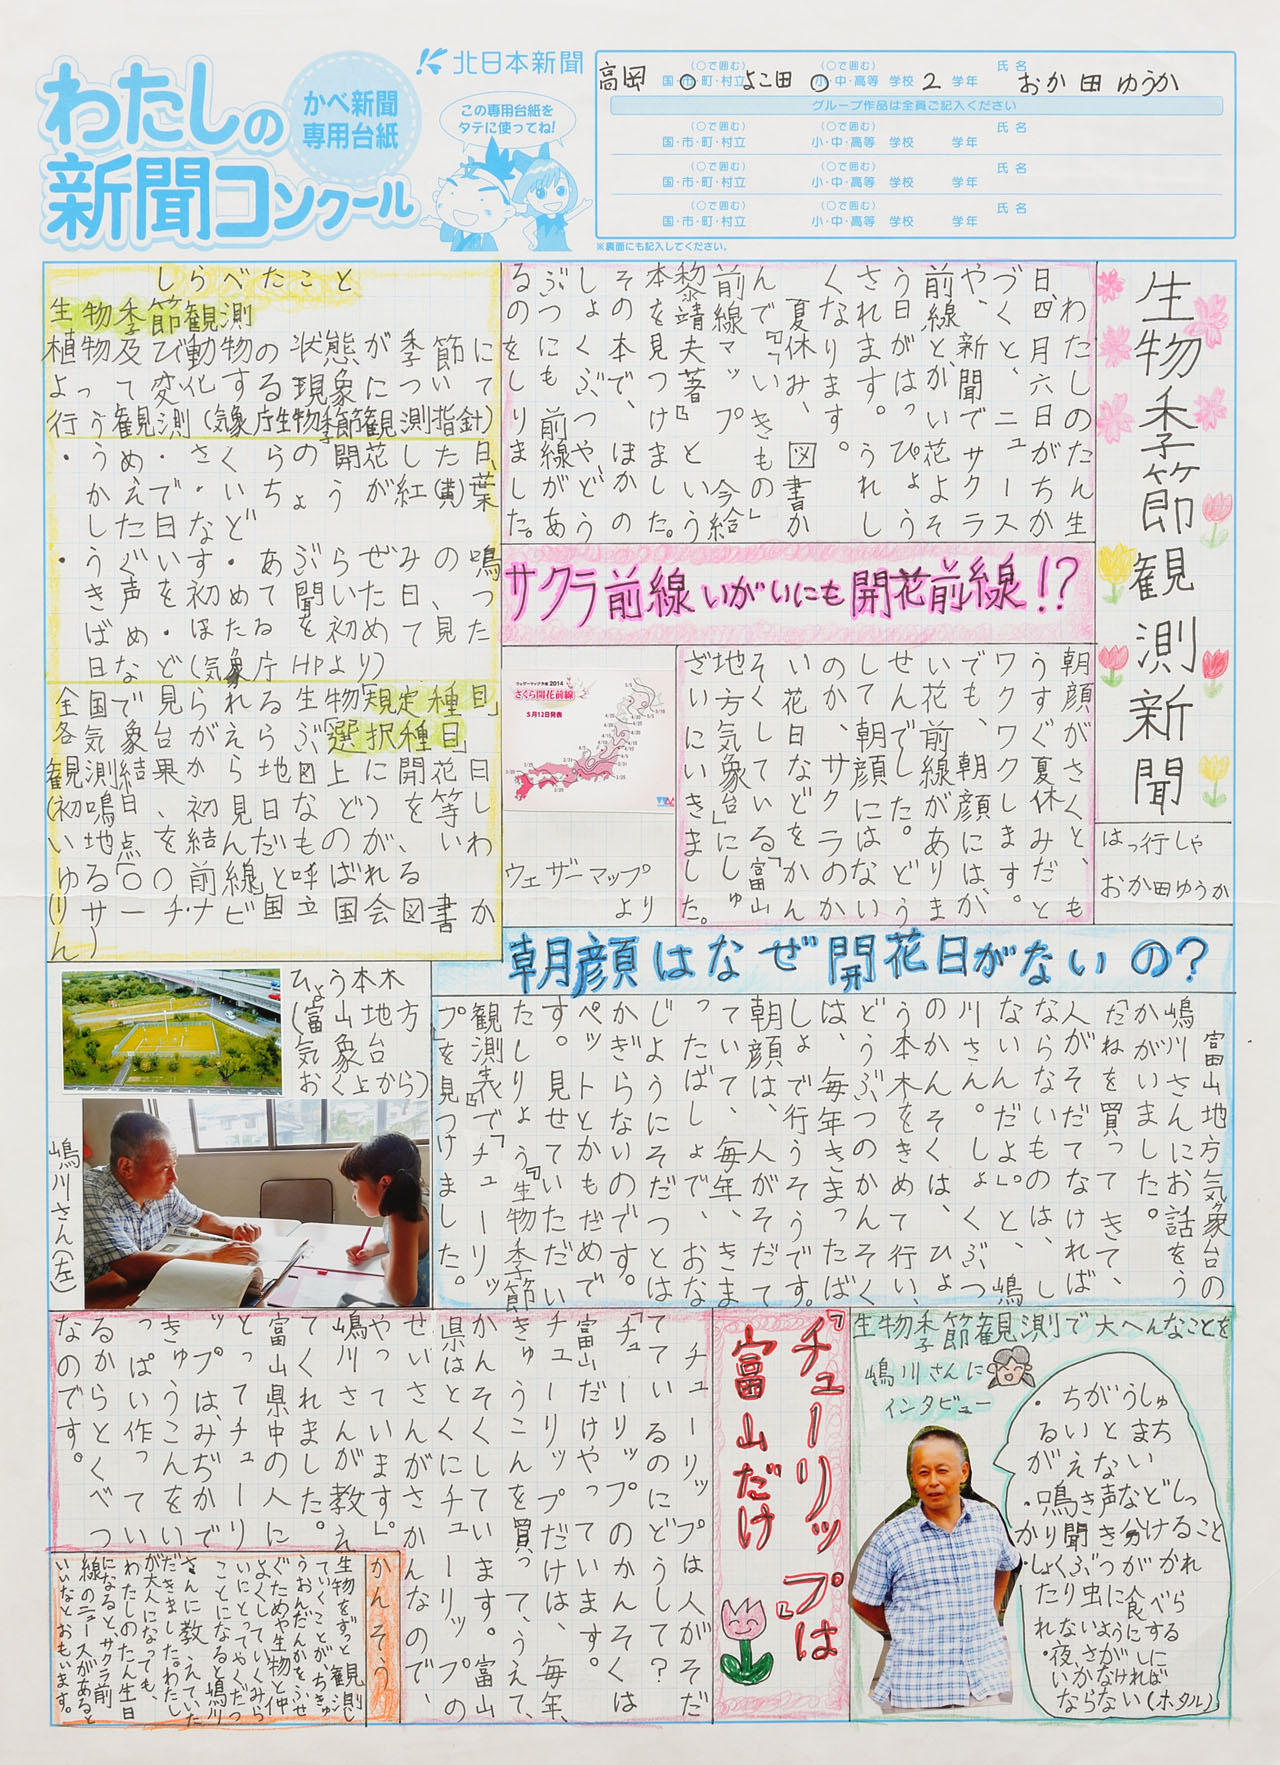 わたしの
新聞コンクール
かべ新聞
専用台紙
北日本新聞
この専用台紙を
タテに使ってね!
(○で囲む) (○で囲む) 氏名
高岡 国・市・町・村立 よこ田 小・中・高等 学校 2 学年 おか田ゆうか
グループ作品は全員ご記入ください
(○で囲む) (○で囲む) 氏名
国・市・町・村立 小・中・高等 学校 学年
(○で囲む) (○で囲む) 氏名
国・市・町・村立 小・中・高等 学校 学年
(○で囲む) (○で囲む) 氏名
国・市・町・村立 小・中・高等 学校 学年
※裏面にも記入してください。
生物季節観測新聞
はっ行しゃ
おか田ゆうか
わたしのたん生
日、四月六日がちか
づくと、ニュース
や、新聞でサクラ
前線と、かい花よそ
う日がはっぴょう
されます。うれし
くなります。
夏休み、図書か
んで『「いきもの」
前線マップ 今給
黎靖夫著』という
本を見つけました。
その本で、ほかの
しょくぶつや、どう
ぶつにも前線があ
るのをしりました。
サクラ前線いがいにも開花前線!?
朝顔がさくと、も
うすぐ夏休みだと
ワクワクします。
でも、朝顔には、か
い花前線がありま
せんでした。どう
して朝顔にはない
のか、サクラのか
い花日などをかん
そくしている「富山
地方気象台」にしゅ
ざいにいきました。
ウェザーマップ予報 2014
さくら開花前線
5月12日発表
ウェザーマップ
より
しらべたこと
生物季節観測
植物及び動物の状態が季節に
よって変化する現象について
行う観測(気象庁生物季節観測指針)
・うめ・さくらの開花した日、
かえで・いちょうが紅(黄)葉
した日など
・うぐいす・あぶらぜみの鳴
き声を初めて聞いた日、つ
ばめ・ほたるを初めて見た
日など(気象庁HPより)
全国で見られる生物「規定種目」
各気象台がえらぶ「選択種目」
観測結果から地図上に開花日
(初鳴日、初見日など)を等し
い地点を結んだものが、いわ
ゆる「○○前線」と呼ばれる
(リサーチ・ナビ国立国会図書か
ん)
朝顔はなぜ開花日がないの?
富山地方気象台の
嶋川さんにお話をう
かがいました。
「たねを買ってきて、
人がそだてなければ
ならないものは、し
ないんだよ」と、嶋
川さん。しょくぶつ
のかんそくは、ひょ
う本木をきめて行い、
どうぶつのかんそく
は、毎年きまったば
しょで行うそうです。
朝顔は、人がそだて
ていて、毎年、きま
ったばしょで、おな
じようにそだつとは
かぎらないのです。
ペットとかもだめで
す。見せていただい
たしりょう『生物季節
観測表』で「チューリッ
プ」を見つけました。
ひょう本木
(富山地方
気象台
おく上から)
嶋川さん(左)
「チューリップは」
富山だけ
チューリップは人がそだ
てているのにどうして?
「チューリップのかんそくは
富山だけやっています。
チューリップだけは、毎年、
きゅうこんを買って、うえて、
かんそくしています。富山
県はとくにチューリップの
せいさんがさかんなので、
やっています。」
嶋川さんが教え
てくれました。
富山県中の人に
とってチューリ
ップは、みぢかで
きゅうこんをい
っぱい作ってい
るからとくべつ
なのです。
生物季節観測で大へんなことを
嶋川さんに
インタビュー
・ちがうしゅ
るいとまち
がえない
・鳴き声などしっ
かり聞き分けること
・しょくぶつがかれ
たり虫に食べら
れないようにする
・夜、さがしに
いかなければ
ならない(ホタル)
かんそう
生物をずっと観測し
ていくことがちきゅ
うおんだんかをふせ
ぐためや生物と仲
よくしていくみら
いにとってやくだつ
ことになると嶋川
さんに教えていた
だきました。わたし
が大人になっても、
わたしのたん生日
になると、サクラ前
線のニュースがあると
いいなとおもいます。